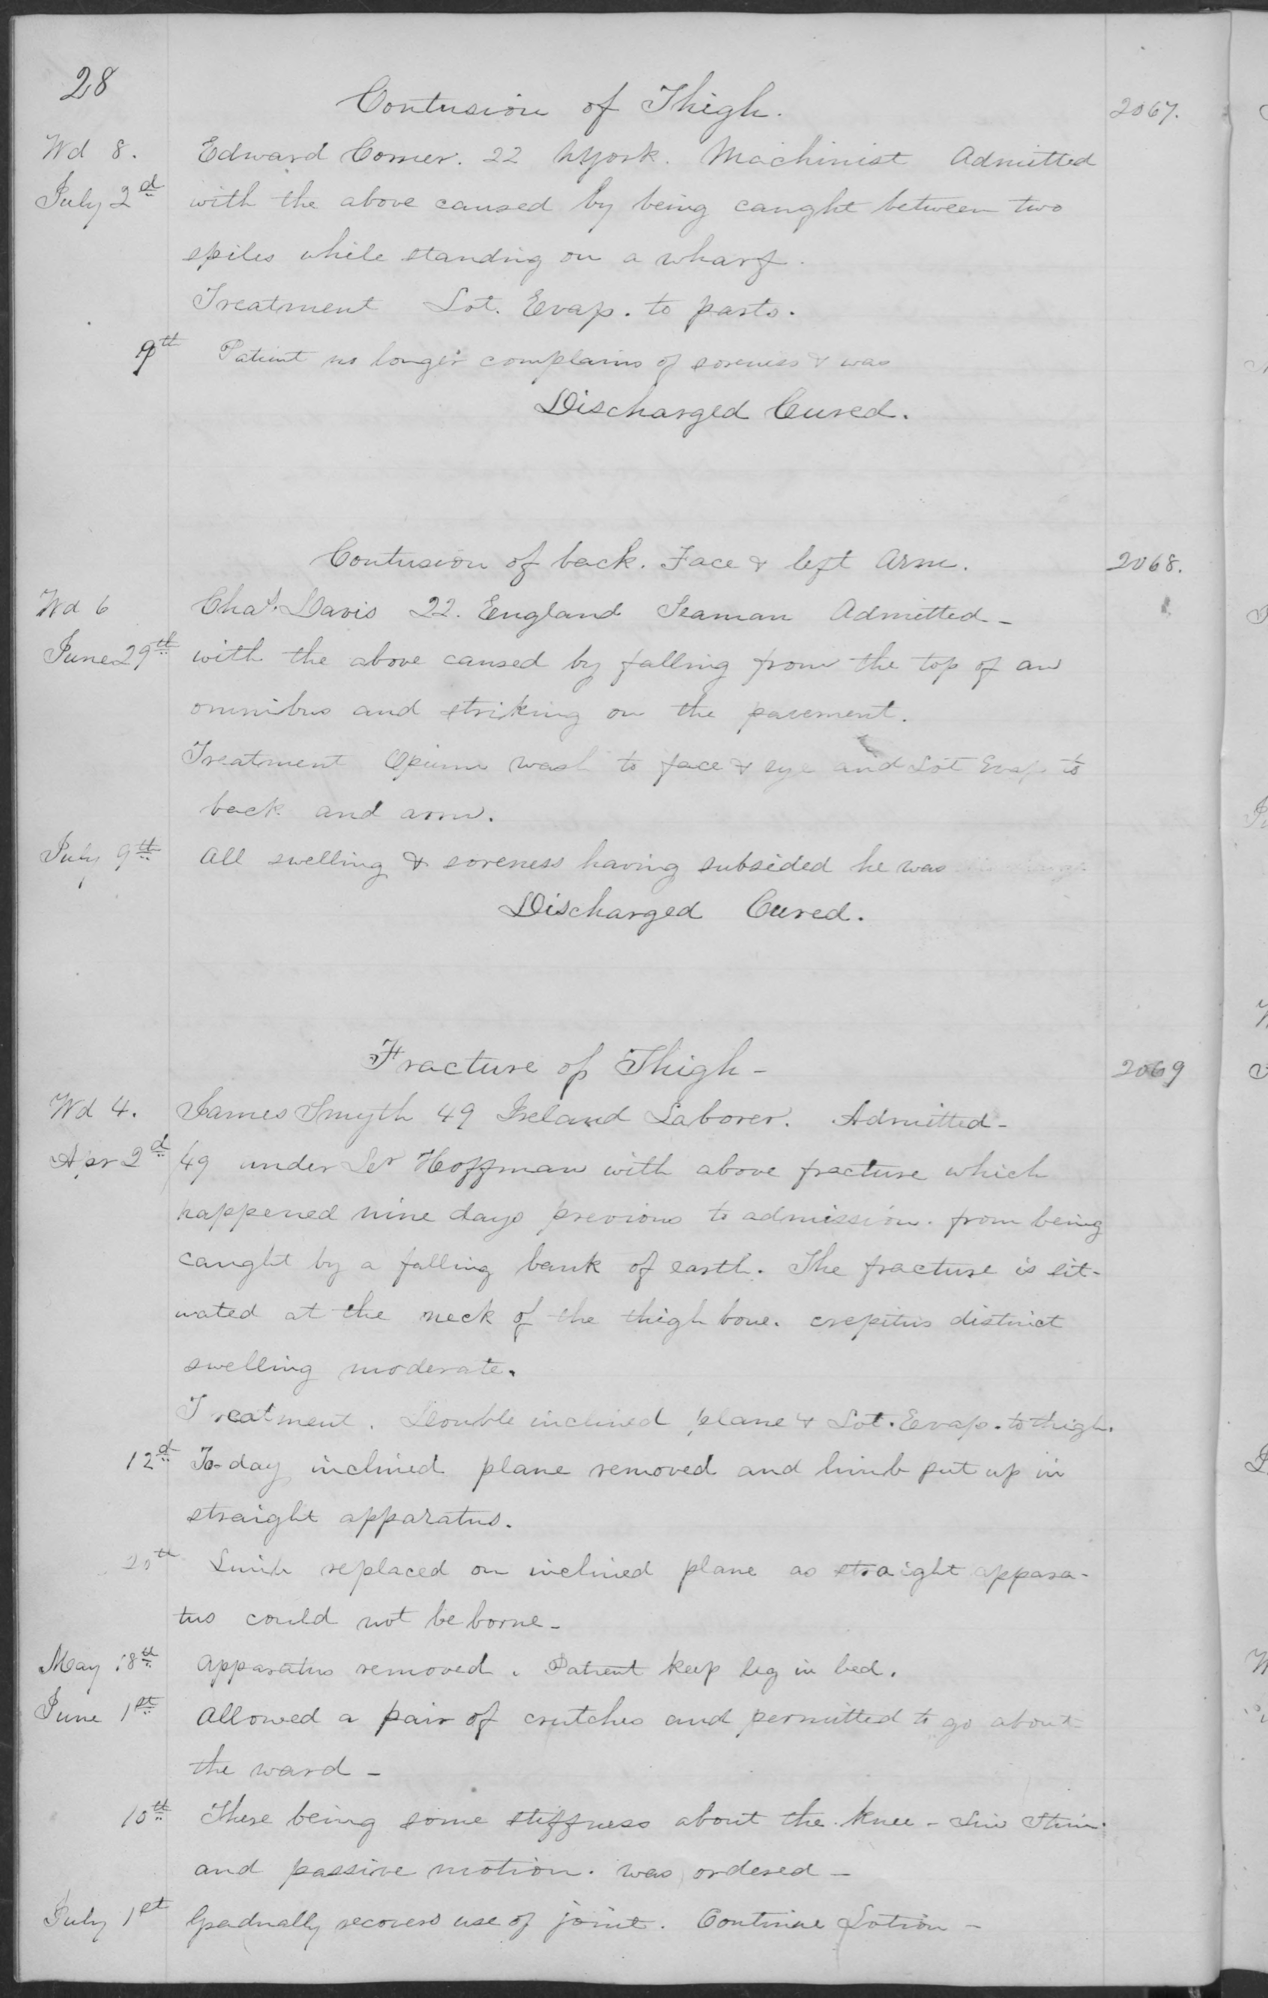 28
Contusion of Thigh. 2067.
Wd 8. Edward Comer. 22 NYork. Machinist Admitted
July 2d with the above caused by being caught between two
spiles while standing on a wharf.
Treatment Lot. Evap. to parts.
9th Patient no longer complains of soreness & was
Discharged Cured.
Contusion of back. Face & left Arm. 2068.
Wd 6 Chas. Davis 22. England Seaman Admitted-
June 29th with the above caused by falling from the top of an
omnibus and striking on the pavement.
Treatment Opium wash to face & eye and Lot Evap to
back and arm.
July 9th All swelling & soreness having subsided he was
Discharged Cured.
Fracture of Thigh- 2069
Wd 4. James Smyth 49 Ireland Laborer. Admitted-
Apr 2d /49 under Dr Hoffman with above fracture which
happened nine days previous to admission. from being
caught by a falling bank of earth. The fracture is sit-
uated at the neck of the thigh bone. crepitus distinct
swelling moderate.
Treatment. Double inclined plane & Lot. Evap. to thigh.
12d To-day inclined plane removed and limb put up in
straight apparatus.
20th Limb replaced on inclined plane as straight appara-
tus could not be borne-
May 18th Apparatus removed. Patient keep leg in bed.
June 1st Allowed a pair of crutches and permitted to go about
the ward-
10th There being some stiffness about the knee- Lin Stim.
and passive motion. was ordered-
July 1st Gradually recovers use of joint. Continue Lotion-